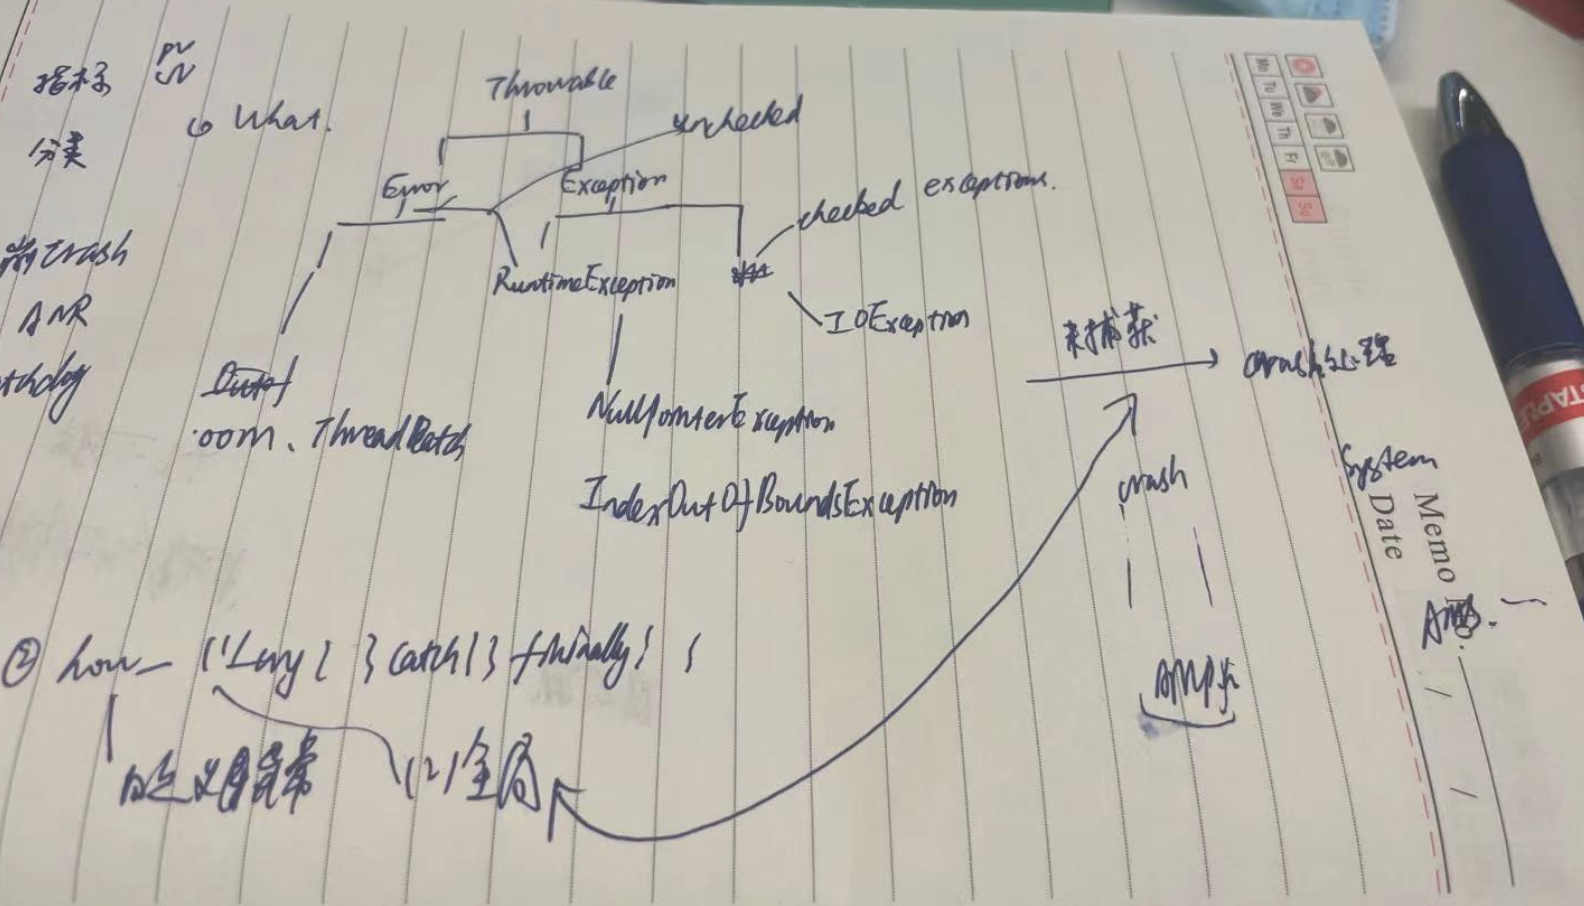 指标 PV
UV
分类
crash
ANR
① What.
Throwable
unchecked
Error
Exception
checked exceptions.
RuntimeException
IOException
OOM、ThreadDeath
NullPointerException
IndexOutOfBoundsException
未捕获
crash处理
crash
System
② how
try{ }catch{ }finally{ }
自定义异常
(2)全局
Mo Tu We Th Fr Sa Su
Memo No.
Date / /
STAPL